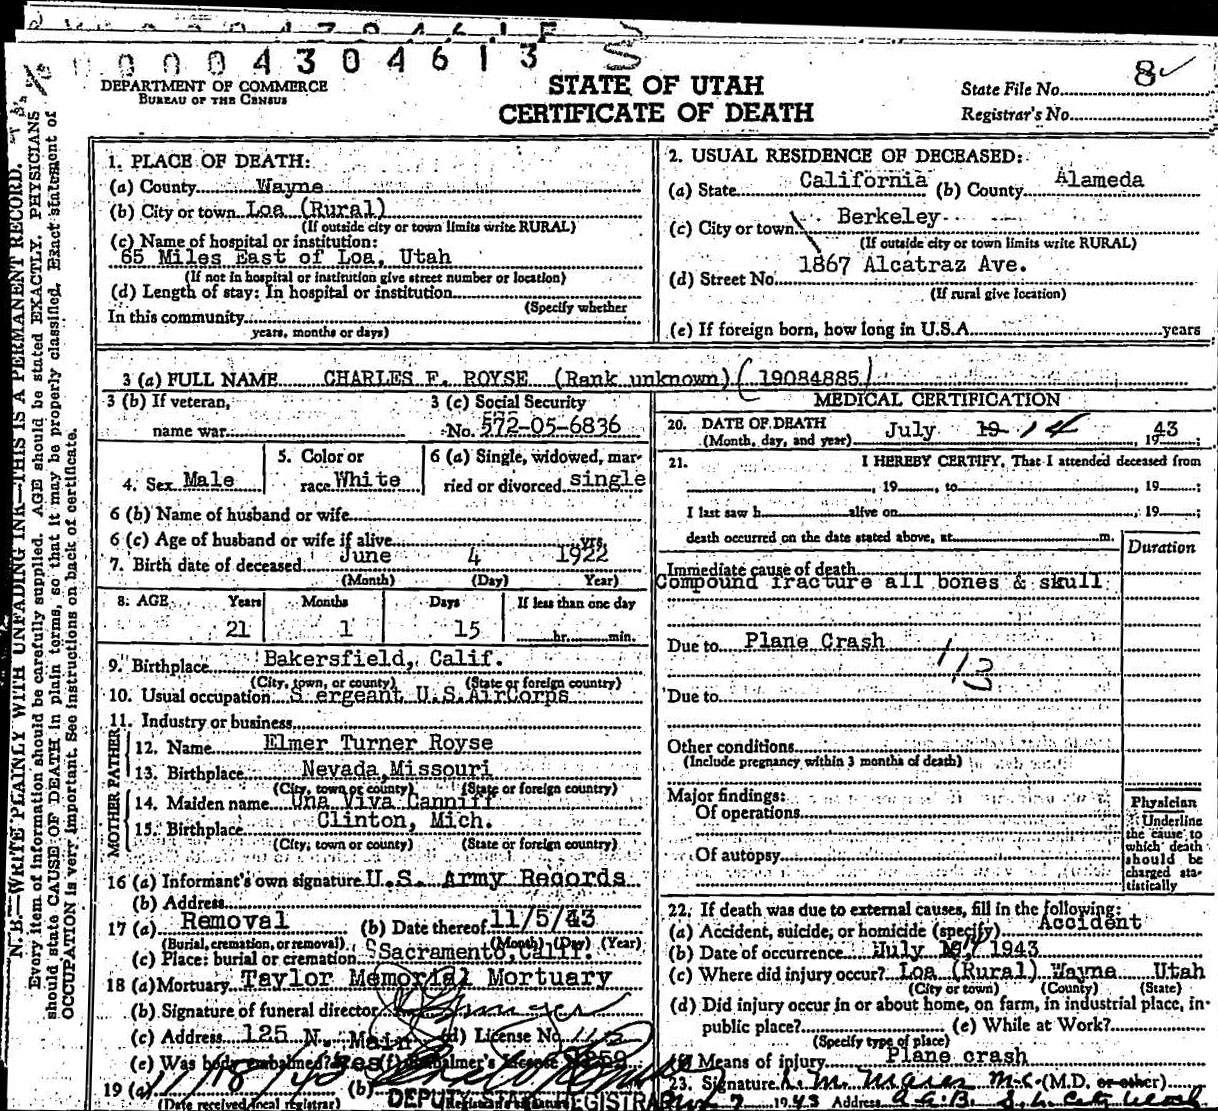 0 0 0 4 3 0 4 6 1 3
DEPARTMENT OF COMMERCE
BUREAU OF THE CENSUS
STATE OF UTAH
CERTIFICATE OF DEATH
8
State File No.
Registrar's No.
N. B.—WRITE PLAINLY WITH UNFADING INK—THIS IS A PERMANENT RECORD.
Every item of information should be carefully supplied. AGE should be stated EXACTLY. PHYSICIANS
should state CAUSE OF DEATH in plain terms, so that it may be properly classified. Exact statement of
OCCUPATION is very important. See instructions on back of certificate.
1. PLACE OF DEATH:
(a) County Wayne
(b) City or town Loa (Rural)
(If outside city or town limits write RURAL)
(c) Name of hospital or institution:
65 Miles East of Loa, Utah
(If not in hospital or institution give street number or location)
(d) Length of stay: In hospital or institution
(Specify whether
In this community
years, months or days)
2. USUAL RESIDENCE OF DECEASED:
(a) State California (b) County Alameda
(c) City or town Berkeley
(If outside city or town limits write RURAL)
(d) Street No. 1867 Alcatraz Ave.
(If rural give location)
(e) If foreign born, how long in U.S.A. years
3 (a) FULL NAME CHARLES F. ROYSE (Rank unknown) (19084885)
3 (b) If veteran,
name war
3 (c) Social Security
No. 572-05-6836
4. Sex Male
5. Color or
race White
6 (a) Single, widowed, mar-
ried or divorced single
6 (b) Name of husband or wife
6 (c) Age of husband or wife if alive yrs.
7. Birth date of deceased June 4 1922
(Month) (Day) Year)
8. AGE Years Months Days If less than one day
21 1 15 hr. min.
9. Birthplace Bakersfield, Calif.
(City, town, or county) (State or foreign country)
10. Usual occupation S ergeant U.S.AirCorps
11. Industry or business
FATHER
12. Name Elmer Turner Royse
13. Birthplace Nevada, Missouri
(City, town or county) (State or foreign country)
MOTHER
14. Maiden name Una Viva Canniff
15. Birthplace Clinton, Mich.
(City, town or county) (State or foreign country)
16 (a) Informant's own signature U.S. Army Records
(b) Address
17 (a) Removal (b) Date thereof 11/5/43
(Burial, cremation, or removal) (Month) (Day) (Year)
(c) Place: burial or cremation Sacramento, Calif.
18 (a) Mortuary Taylor Memorial Mortuary
(b) Signature of funeral director
(c) Address 125 N. Main (d) License No.
(e) Was body embalmed? Yes (f) Embalmer's License
19 (a) 11/18/43 (b)
(Date received local registrar)
DEPUTY STATE REGISTRAR
MEDICAL CERTIFICATION
20. DATE OF DEATH
(Month, day, and year) July 19 14, 1943;
21. I HEREBY CERTIFY, That I attended deceased from
, 19 , to , 19 ;
I last saw h alive on , 19 ;
death occurred on the date stated above, at m.
Duration
Immediate cause of death
Compound fracture all bones & skull
Due to Plane Crash
113
Due to
Other conditions
(Include pregnancy within 3 months of death)
Major findings:
Of operations
Of autopsy
Physician
Underline
the cause to
which death
should be
charged sta-
tistically
22. If death was due to external causes, fill in the following:
(a) Accident, suicide, or homicide (specify) Accident
(b) Date of occurrence July 14, 1943
(c) Where did injury occur? Loa (Rural) Wayne Utah
(City or town) (County) (State)
(d) Did injury occur in or about home, on farm, in industrial place, in
public place? (e) While at Work?
(Specify type of place)
(f) Means of injury Plane crash
23. Signature M.C. (M.D. or other)
1943 Address A.A.B. S. L. City Utah